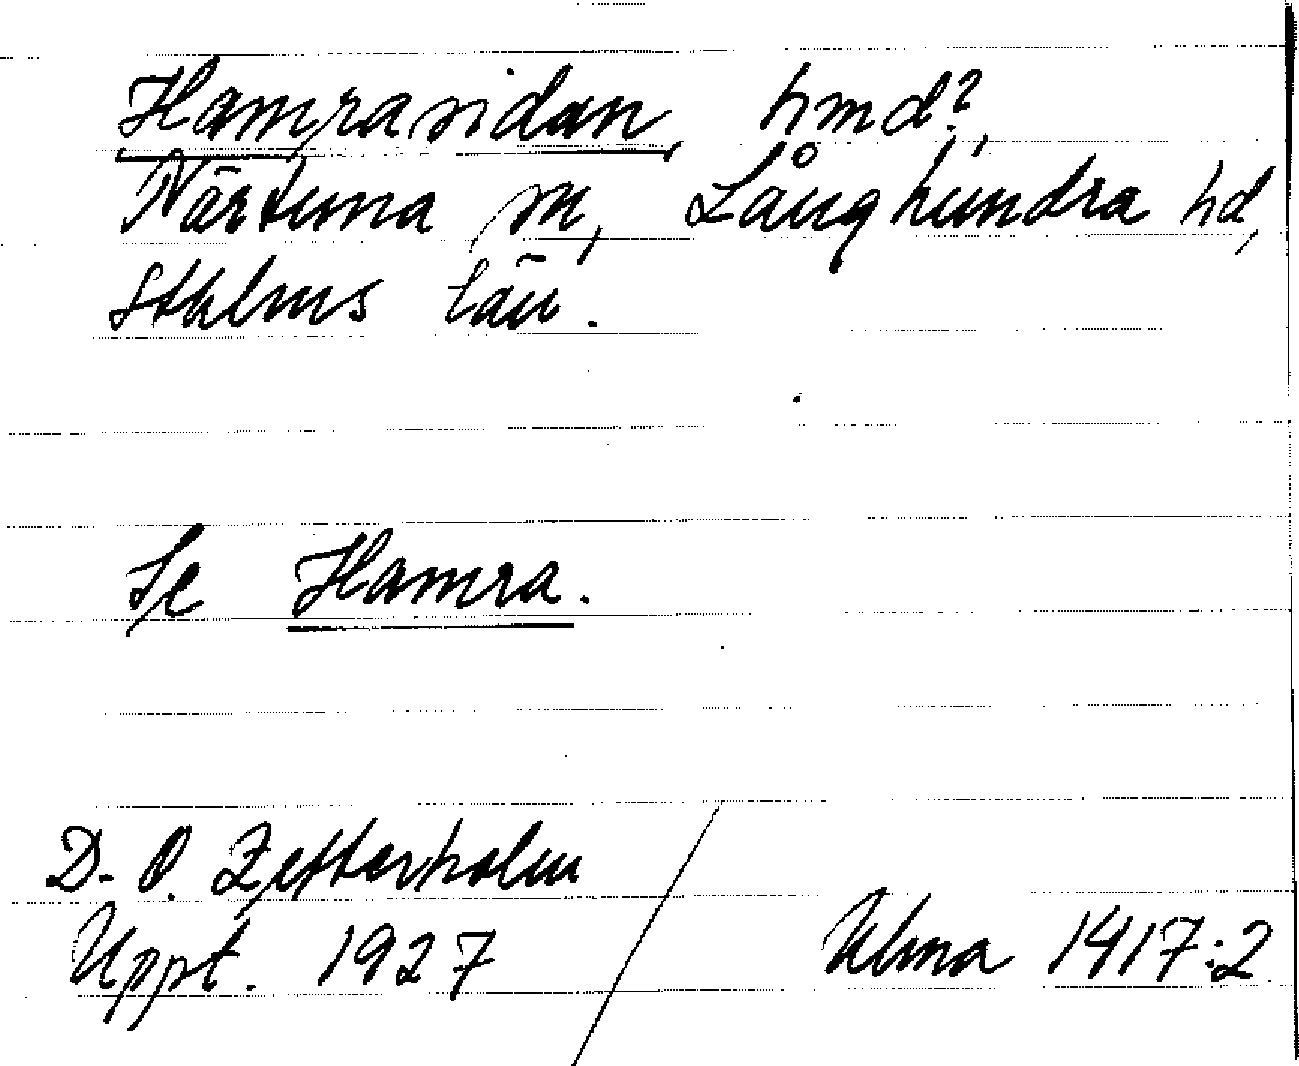 Hamrasidan, hmd?,
Närtuna sn, Långhundra hd,
Sthlms län.
Se Hamra.
D. O. Zetterholm
Uppt. 1927
Ulma 1417:2